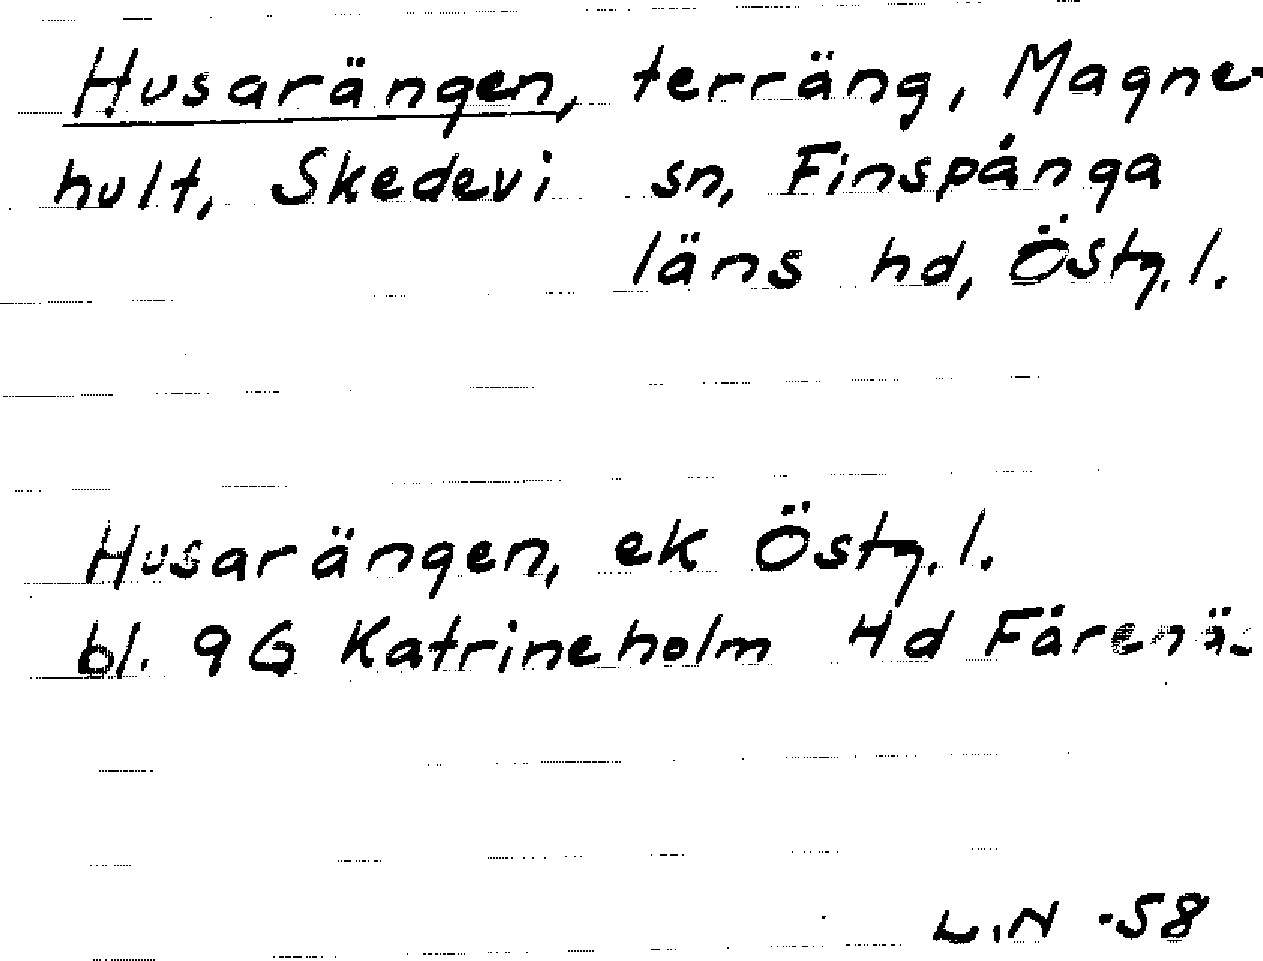 Husarängen, terräng, Magne-
hult, Skedevi sn, Finspånga
läns hd, Östg. l.
Husarängen, ek Östg. l.
bl. 9G Katrineholm 4d Fårenäs
L.N -58